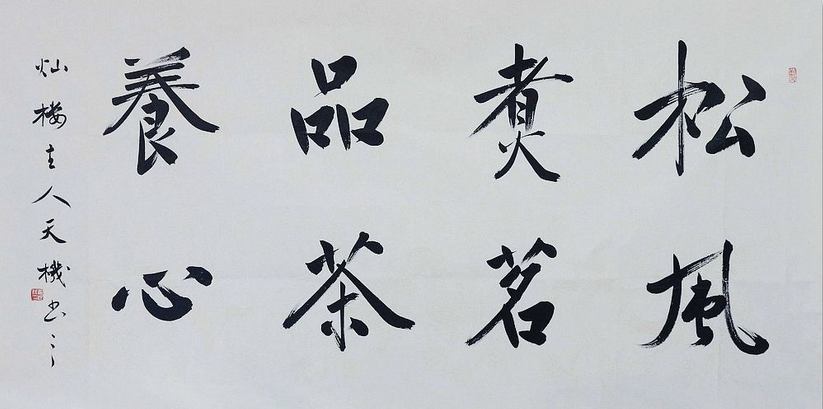 松風
煮茗
品茶
養心
灿楼主人天機书